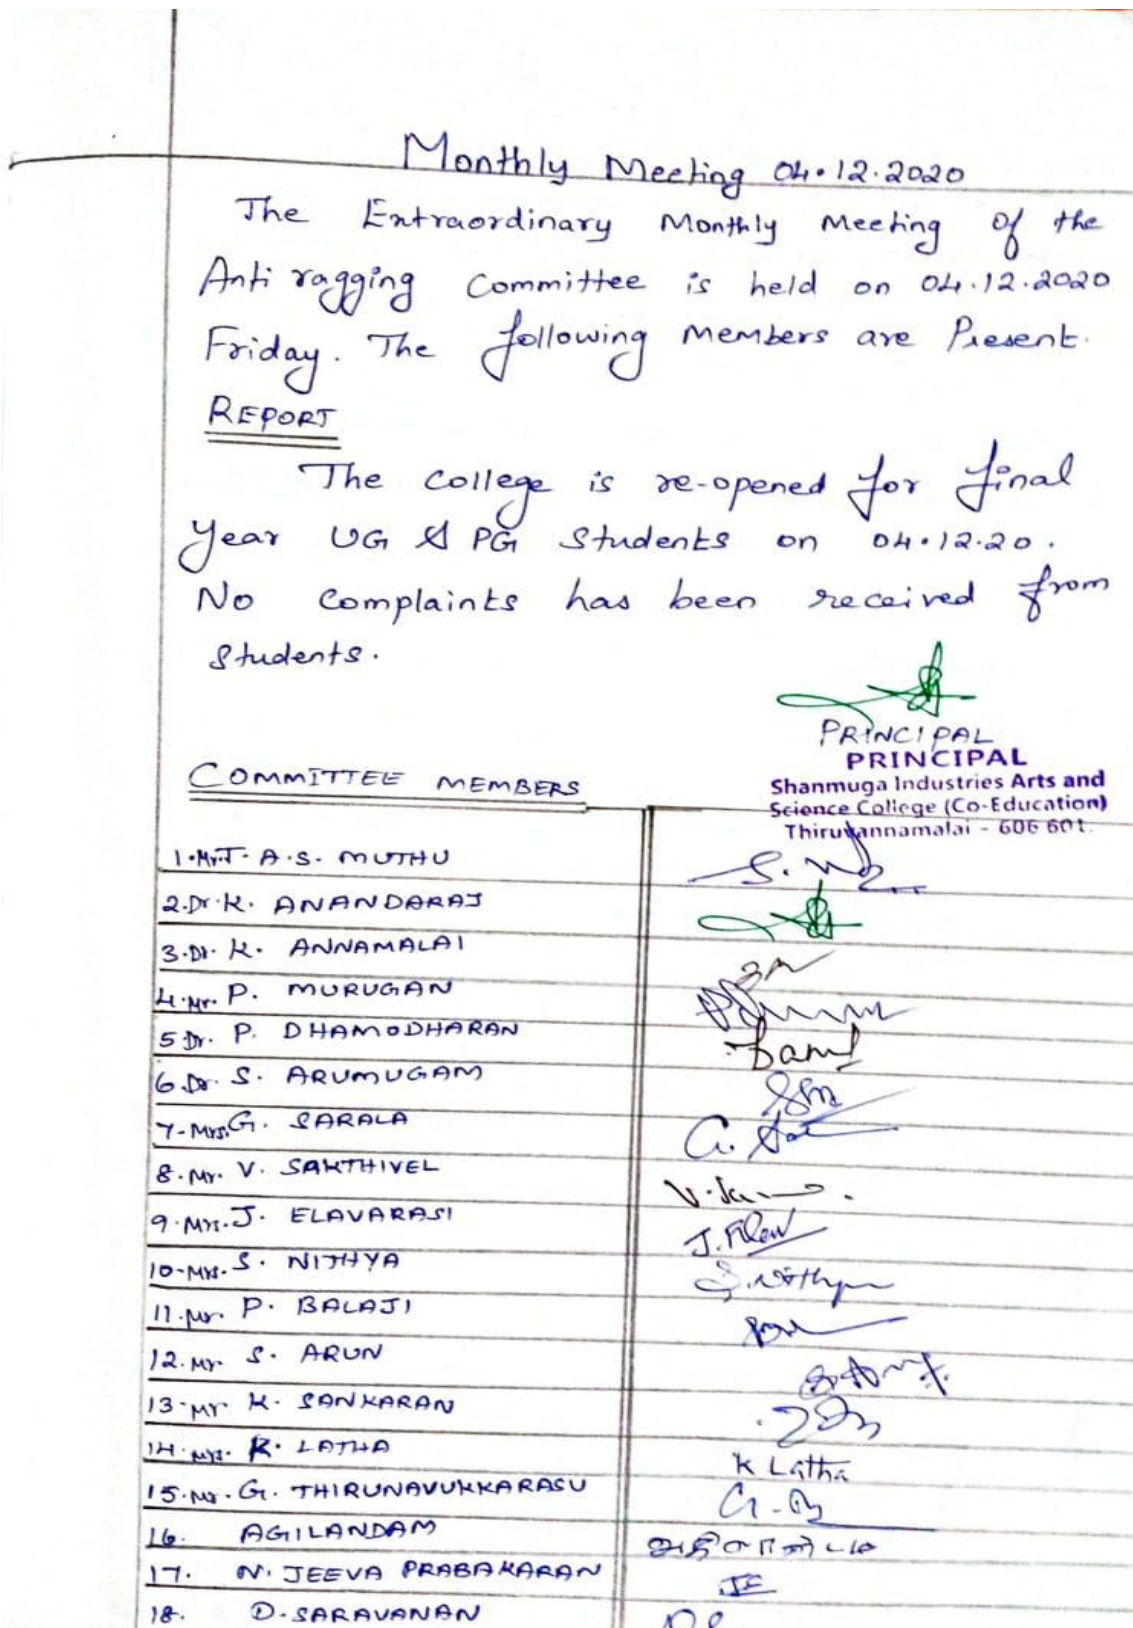 Monthly Meeting 04.12.2020
The Extraordinary Monthly Meeting of the
Anti ragging Committee is held on 04.12.2020
Friday. The following Members are Present.
REPORT
The college is re-opened for final
Year UG & PG Students on 04.12.20.
No complaints has been received from
Students.
PRINCIPAL
PRINCIPAL
Shanmuga Industries Arts and
Science College (Co-Education)
Thiruvannamalai - 606 601.
COMMITTEE MEMBERS
1. Mr. T. A. S. MUTHU
2. Dr. K. ANANDARAJ
3. Dr. K. ANNAMALAI
4. Mr. P. MURUGAN
5 Dr. P. DHAMODHARAN
6. Dr. S. ARUMUGAM
7- Mrs. G. SARALA G. Sa
8. Mr. V. SAKTHIVEL
9. Mrs. J. ELAVARASI J. Elav
10- Mrs. S. NITHYA S. Nithya
11. Mr. P. BALAJI
12. Mr. S. ARUN
13- Mr K. SANKARAN
14. Mrs. K. LATHA K Latha
15. Mr. G. THIRUNAVUKKARASU
16. AGILANDAM
17. N. JEEVA PRABAKARAN
18. D. SARAVANAN